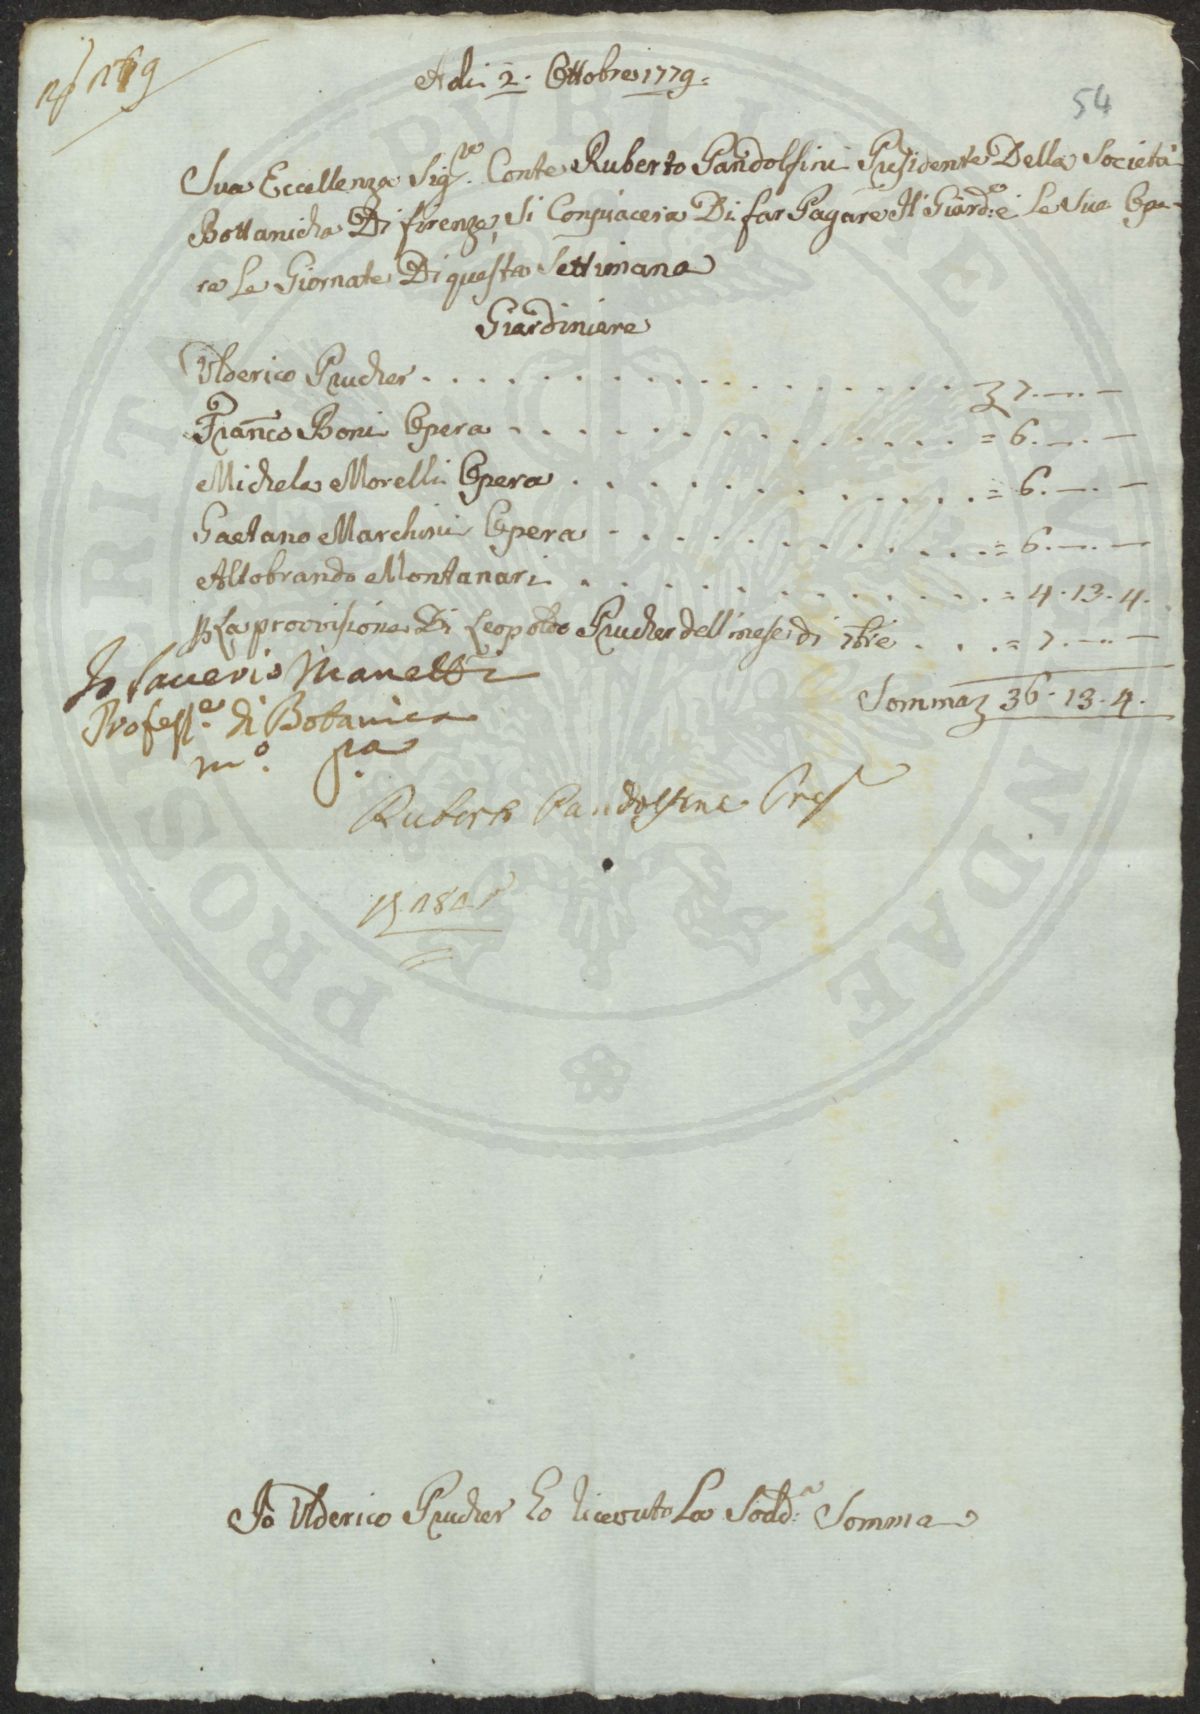 Adi 2. Ottobre 1779.
54
Sua Eccellenza Sig.re Conte Ruberto Pandolfini Presidente Della Società
Bottanicha Di firenze, Si Compiacerà Di far Pagare Il Giard.e e Le Sue Ope-
re Le Giornate Di questa Settimana
Giardiniere
Ulderico Prucher . . . . . . . . . . . . 7.—.—
Franco Boni Opera . . . . . . . . . . . . = 6.—.—
Michele Morelli Opera . . . . . . . . . . . = 6.—.—
Gaetano Marchini Opera . . . . . . . . . . . = 6.—.—
Altobrando Montanari . . . . . . . . . . . = 4.13.4.
p La provvisione Di Leopoldo Prucher dell mese di 7bre . . . = 7.—.—
Somma 36.13.4.
Io Saverio Manetti
Profess.e di Botanica
m.o p.a
Ruberto Pandolfini Pres
Io Ulderico Prucher ho riceuto La Sodd.a Somma
PROSPERITATI PUBLICAE AUGENDAE